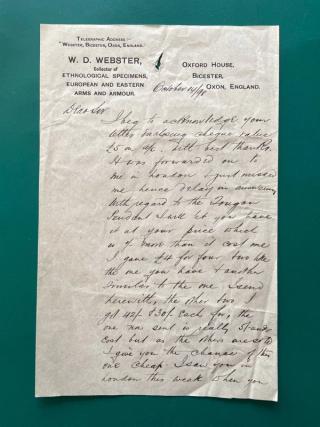 TELEGRAPHIC ADDRESS:—
"WEBSTER, BICESTER, OXON, ENGLAND."
W. D. WEBSTER,
Collector of
ETHNOLOGICAL SPECIMENS,
EUROPEAN AND EASTERN
ARMS AND ARMOUR.
OXFORD HOUSE,
BICESTER,
OXON, ENGLAND.
October
Dear Sir
I beg to acknowledge your
letter enclosing cheque value
with best thanks.
It was forwarded on to
me in London & just missed
me hence delay in answering
With regard to the Tongan
Pendant I will let you have
it at your price which
is more than it cost me
I gave £4 for four two like
the one you have & another
similar to the one I send
herewith, the other two I
got 42/- & 30/- each for, the
one now sent is really
cost but as the others are sold
I give you the chance of this
one cheap. I saw you in
London this week when you